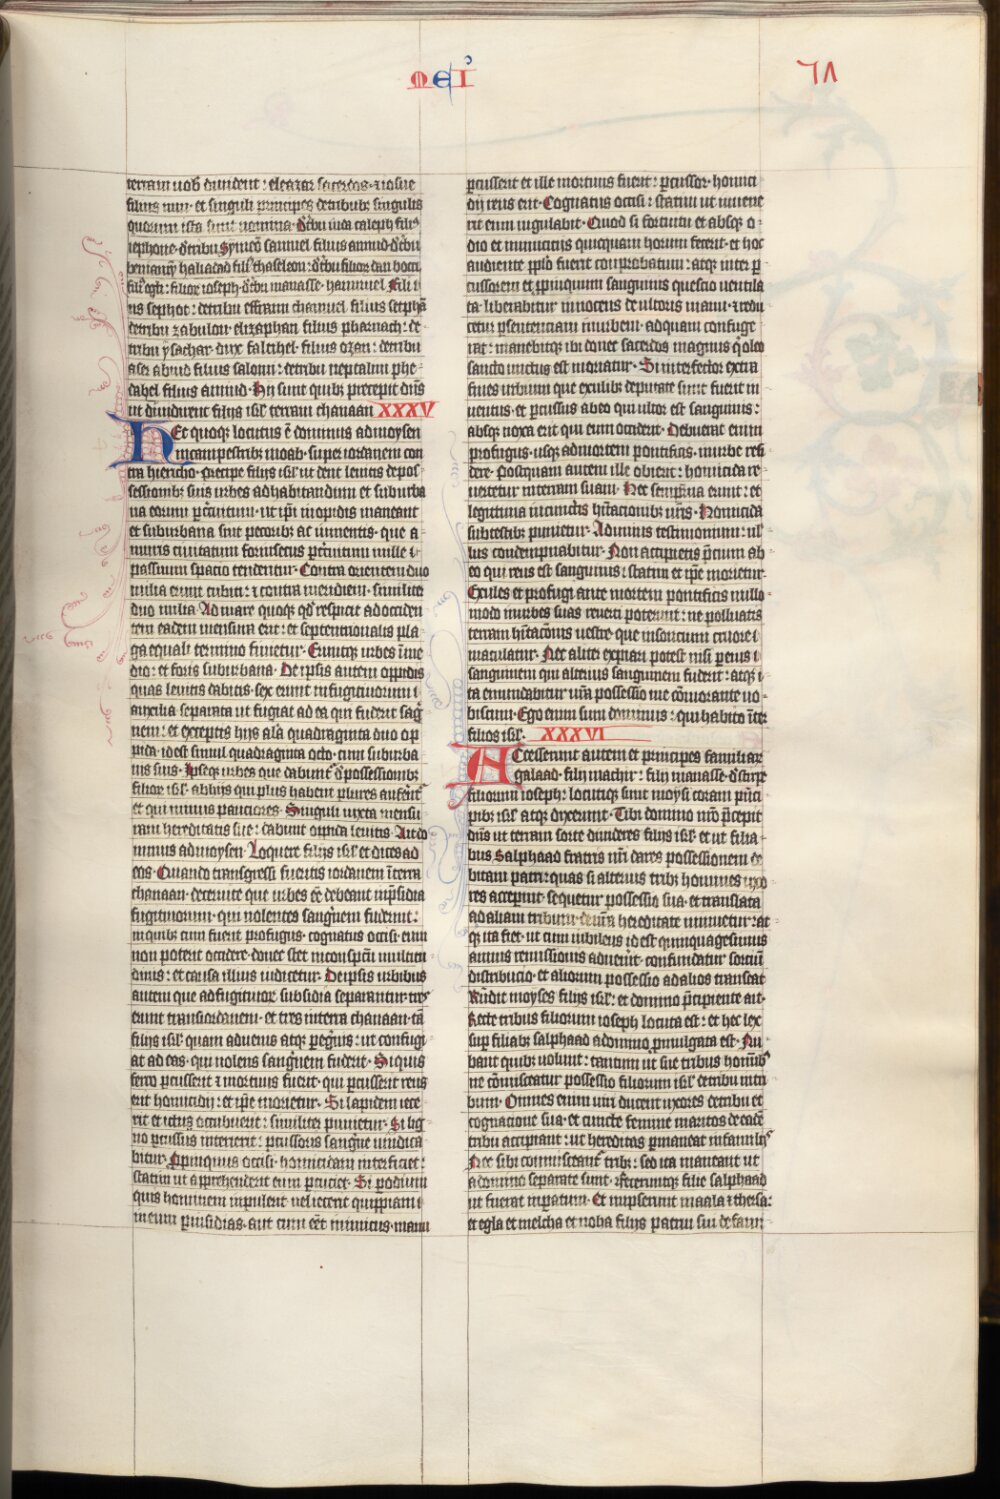 MEI
71
terram uob̃ diuident : eleazar sacerdos · ⁊ iosue
filius nun · et singuli principes de tribubꝫ singulis
quorum ista sunt nomina · De tribu iuda caleph filiꝰ
iephone · de tribu symeõ samuel filius amiud · de tribu
beniamy helidad filiꝰ chaseleon : de tribu filioꝝ dan bocci
filiꝰ iogli : filioꝝ ioseph · de tribu manasse · hanniel filii
us sephot : de tribu effraim chamuel filius septhã
de tribu zabulon · elizaphan filius pharnach : de
tribu ysachar · dux faltihel · filius ozan : de tribu
aser abiud filius salomi : de tribu neptalim phe
dahel filius amiud · Hij sunt quibꝫ precepit dñs
ut diuiderent filijs isrł terram chanaan XXXV
Hec quoqꝫ locutus ẽ dominus ad moysen
in campestribꝫ moab · super iordanem con
tra hiericho · Precipe filijs isrł ut dent leuitis de pos
sessionibꝫ suis urbes ad habitandum et suburba
na eorum ꝑ circuitum · ut ip̃i in opidis maneant
et suburbana sint pecoribꝫ ac iumentis · que a
muris ciuitatum forinsecus ꝑ circuitum mille
passuum spacio tendentur · Contra orientem duo
milia erunt cubiti : ⁊ contra meridiem · similiter
duo milia · Ad mare quoqꝫ qd̃ respicit ad occiden
tem eadem mensura erit : et septentrionalis pla
ga equali termino finietur · Eruntqꝫ urbes ĩ me
dio : et foris suburbana · De ipsis autem oppidis
quas leuitis dabitis · sex erunt in fugitiuorum
auxilia separata ut fugiat ad ea qui fuderit sãg
nem : et exceptis hijs alia quadraginta duo op
pida · id est simul quadraginta octo · cum suburba
nis suis · Ipseqꝫ urbes que dabunt̃ de possessionibꝫ
filioꝝ isrł · ab hijs qui plus habent plures auferẽt̃
et qui minus pauciores · Singuli iuxta mensu
ram hereditatis sue : dabunt opida leuitis · Ait do
minus ad moysen · Loquere filijs isrł et dices ad
eos · Quando transgressi fueritis iordanem ĩ terra
chanaan · decernite que urbes eẽ debeant in p̃sidia
fugitiuorum · qui nolentes sanguinem fuderint :
in quibꝫ cum fuerit profugus · cognatus occisi eum
non poterit occidere · donec stet in conspectu multitu
dinis : et causa illius iudicetur · De ipsis urbibus
autem que ad fugitiuoꝝ subsidia separantur · tres
erunt trans iordanem · et tres in terra chanaan · tã
filijs isrł quam aduenis atqꝫ peg̃nis : ut confugi
at ad eas · qui nolens sanguinem fuderit · Si quis
ferro ꝑcusserit ⁊ mortuus fuerit · qui ꝑcusserit reus
erit homicidij : et ip̃e morietur · Si lapidem iece
rit et ictus occubuerit : similiter punietur · Si lig
no ꝑcussus interierit : ꝑcussoris sanguine uindica
bitur · Propinquus occisi · homicidam interficiet :
statim ut apprehenderit eum ꝑcutiet · Si per odium
quis hominem inpulerit uel iecerit quippiam
in eum per insidias · aut cum eẽt inimicus · manu
ꝑcusserit et ille mortuus fuerit : ꝑcussor · homici
dij reus erit · Cognatus occisi : statim ut inuene
rit eum iugulabit · Quod si fortuitu et absqꝫ o
dio et inimicitijs quicquam horum fecerit · et hoc
audiente pp̃lo fuerit conprobatum : atqꝫ inter ꝑ
cussorem et ꝓpinquum sanguinis questio uentila
ta · liberabitur innocens de ultoris manu · ⁊ redu
cetur per sententiam in urbem · ad quam confuge
rat : manebitqꝫ ibi donec sacerdos magnus q̃ oleo
sancto unctus est moriatur · Si interfector extra
fines urbium que exulibꝫ deputate sunt fuerit in
uentus · et ꝑcussus ab eo qui ultor est sanguinis :
absqꝫ noxa erit qui eum occiderit · Debuerat enim
profugus · usqꝫ ad mortem pontificis · in urbe resi
dere · Postquam autem ille obierit : homicida re
uertetur in terram suam · Hec sempit̃na erunt : et
legitima in cunctis habitacionibꝫ uestris · Homicida
sub testibꝫ punietur · Ad unius testimonium : ul
lus condempnabitur · Non accipietis precium ab
eo qui reus est sanguinis : statim et ip̃e morietur
Exules et profugi ante mortem pontificis nullo
modo in urbes suas reuerti poterunt : ne polluatis
terram habitacionis uestre · que insontium cruore
maculatur · Nec aliter expiari potest nisi per eius
sanguinem qui alterius sanguinem fuderit : atqꝫ i
ta emundabitur ur̃a possessio me cõmorante uo
biscum · Ego enim sum dominus : qui habito ĩter
filios isrł · XXXVI
Accesserunt autem et principes familiaꝝ
galaad · filij machir : filij manasse · de stirpe
filiorum ioseph : locutiqꝫ sunt moysi coram pñci
pibꝫ isrł atqꝫ dixerunt · Tibi domino nr̃o p̃cepit
dñs ut terram sorte diuideres filijs isrł · et ut filia
bus salphaad fratris nr̃i dares possessionem de
bitam patri : quas si alterius tribꝫ homines uxo
res acceperint · sequetur possessio sua · et translata
ad aliam tribum · de nr̃a hereditate minuetur : at
qꝫ ita fiet · ut cum iubileus id est quinquagesimus
annus remissionis aduenit̃ · confundatur sortiũ
distribucio · et aliorum possessio ad alios transeat
Rñdit moyses filijs isrł : et domino p̃cipiente ait ·
Recte tribus filiorum ioseph locuta est : et hec lex
sup̃ filiabꝫ salphaad a domino promulgata est · Nu
bant quibꝫ uolunt : tantum ut sue tribus hominibꝰ
ne cõmisceatur possessio filiorum isrł de tribu in tri
bum · Omnes enim uiri ducent uxores de tribu et
cognacione sua · et cuncte femine maritos de eadẽ
tribu accipiant : ut hereditas ꝑmaneat in familijs
Nec sibi commisceant̃ tribꝫ : sed ita maneant ut
a domino separate sunt · Feceruntqꝫ filie salphaad
ut fuerat imperatum · Et nupserunt maala ⁊ thersa :
et egla et melcha et noha filijs patrui sui de fami